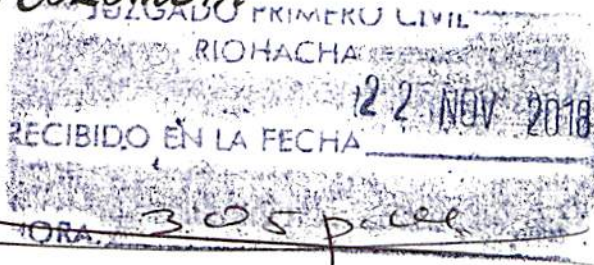 JUZGADO PRIMERO CIVIL
RIOHACHA
22 NOV 2018
RECIBIDO EN LA FECHA
HORA. 3:05 pm